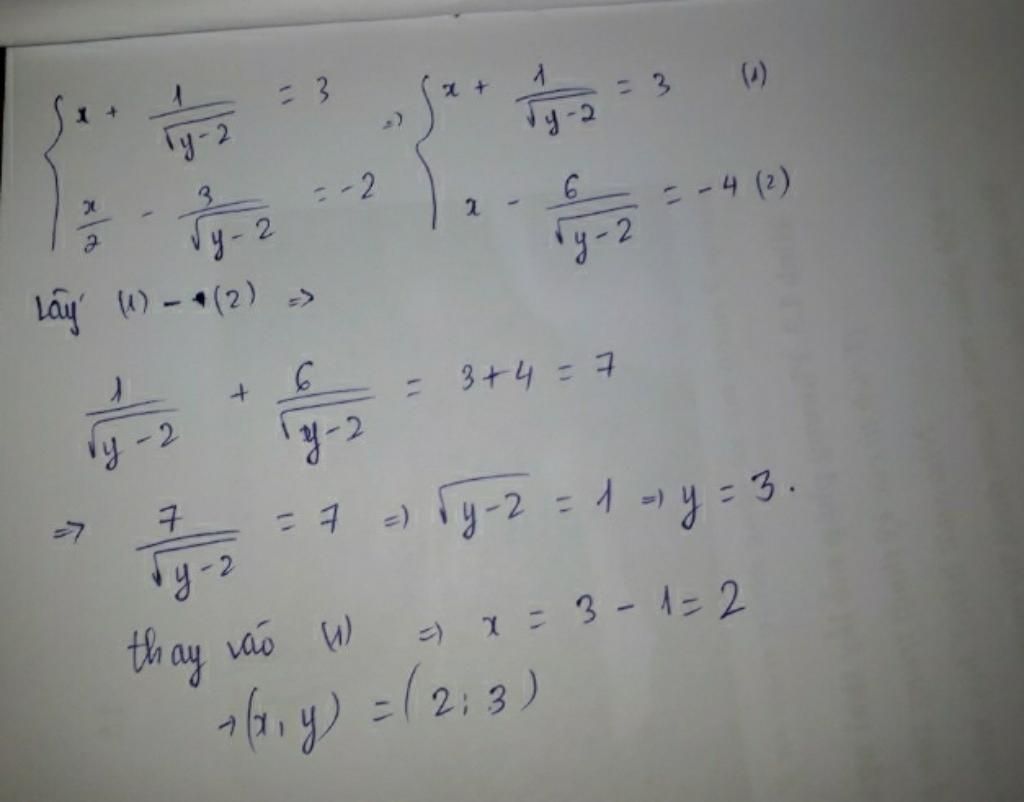 { x + 1/√(y-2) = 3 => { x + 1/√(y-2) = 3 (1)
x/2 - 3/√(y-2) = -2 x - 6/√(y-2) = -4 (2)
Lấy (1) - (2) =>
1/√(y-2) + 6/√(y-2) = 3+4 = 7
=> 7/√(y-2) = 7 => √(y-2) = 1 => y = 3.
thay vào (1) => x = 3 - 1 = 2
→ (x, y) = (2; 3)